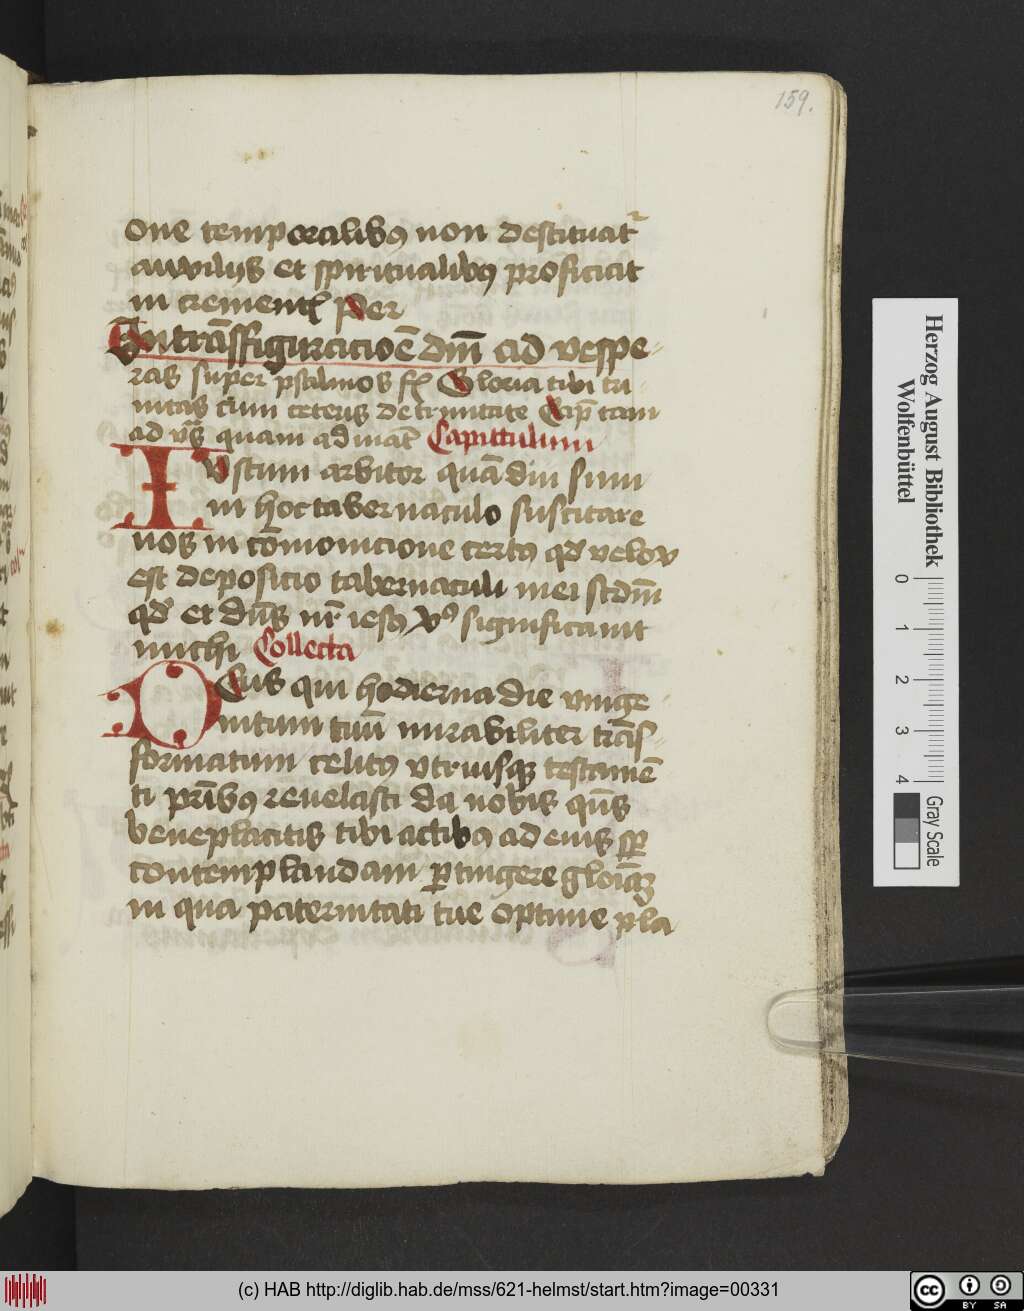 159.
one temporalibꝰ non destituat᷑
auxiliis et spiritualibꝰ proficiat
in crementꝭ Per
In trāsfiguracioē dm̄ ad vespe-
ras super psalmos fꝭ Gloria tibi tri-
nitas cum ceteris de trinitate Cap̄ tam
ad vs̄ quam ad mat̄ Capittulum
IVstum arbitor quādiu sum
in hoc tabernaculo suscitare
uos in cōmonicione certꝰ qd̛ velox
est deposicio tabernaculi mei scdm̄
qd̛ et dn̄s nr̄ iesꝰ xꝰ significauit
michi Collecta
DEus qui hodierna die vnige-
nitum tuū mirabiliter trās-
formatum celitꝰ vtriusqꝫ testamē
ti pr̄ibꝰ reuelasti da nobis qs̄
beneplacitis tibi actibꝰ ad eius sp̄
contemplandam ꝑtingere gloriā
in qua paternitati tue optime pla
Herzog August Bibliothek
Wolfenbüttel
0 1 2 3 4
Gray Scale
(c) HAB http://diglib.hab.de/mss/621-helmst/start.htm?image=00331
cc BY SA